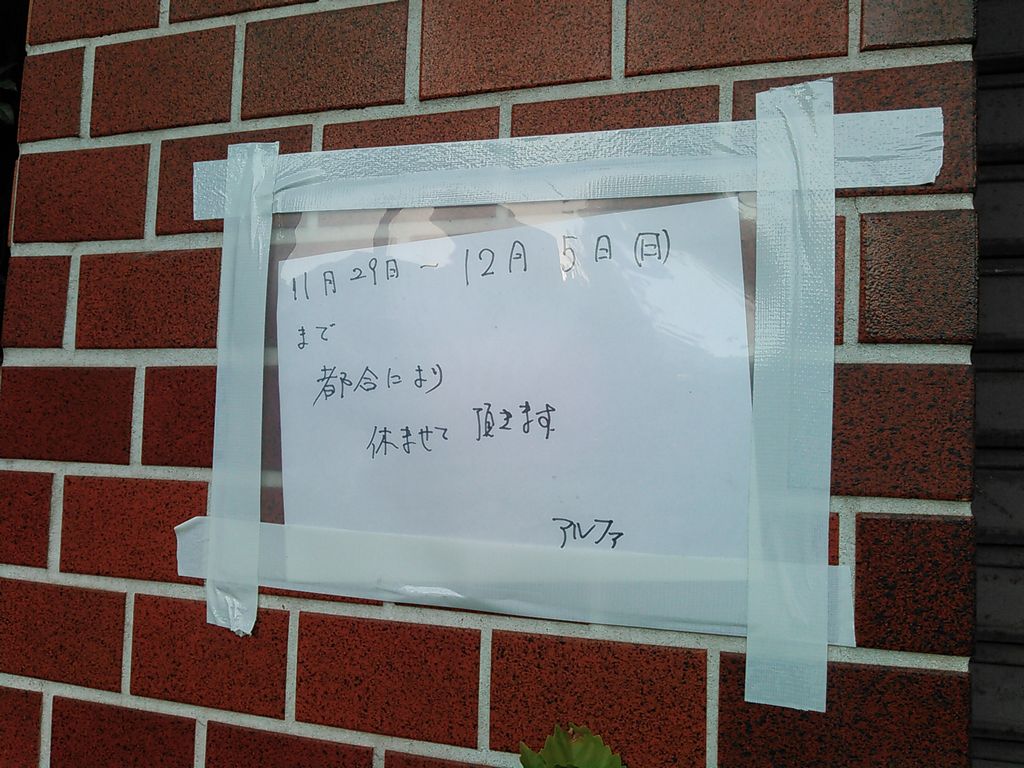 11月29日～12月5日(日)
まで
都合により
休ませて頂きます
アルファ